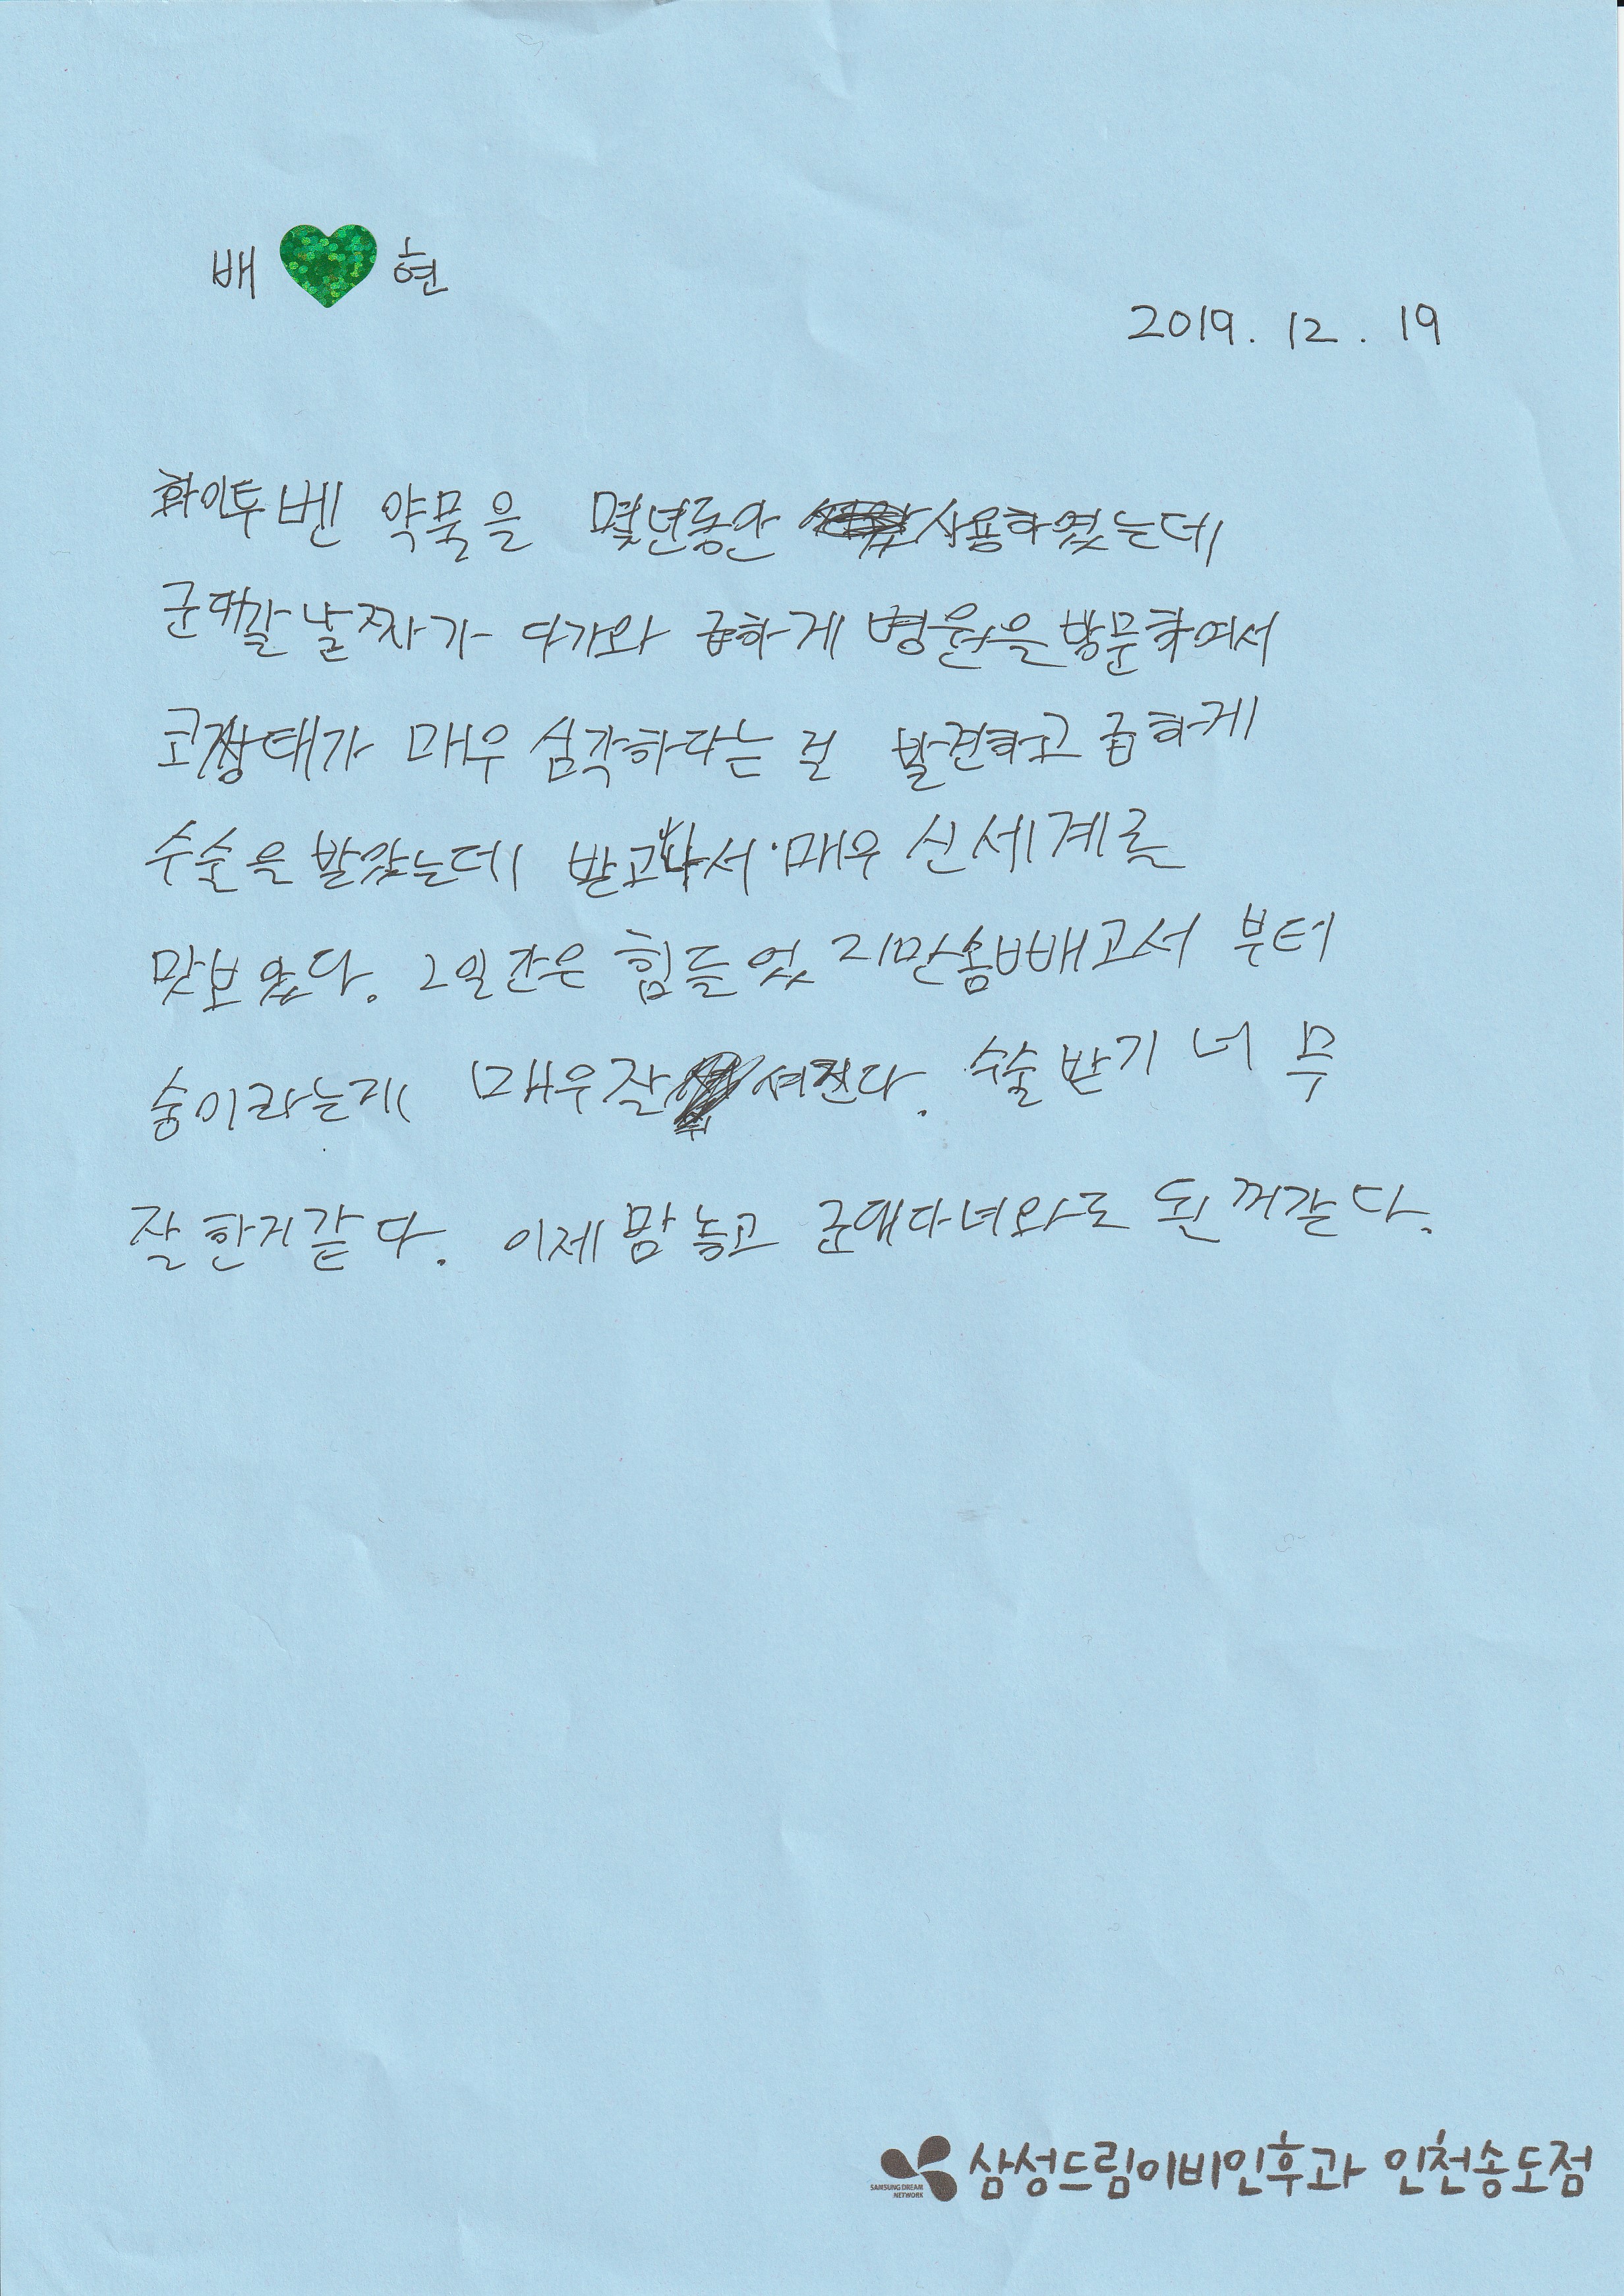 배 현
2019. 12. 19
화이투벤 약물을 몇년동안 사용하였는데
군대갈 날짜가 다가와 급하게 병원을 방문하여서
코상태가 매우 심각하다는 걸 발견하고 급하게
수술을 받았는데 받고나서 매우 신세계를
맛보았다. 2일간은 힘들었지만 솜빼고서 부터
숨이라는게 매우잘 쉬진다. 수술받기 너무
잘한거같다. 이제 맘 놓고 군대다녀와도 된꺼같다.
삼성드림이비인후과 인천송도점
SAMSUNG DREAM
NETWORK